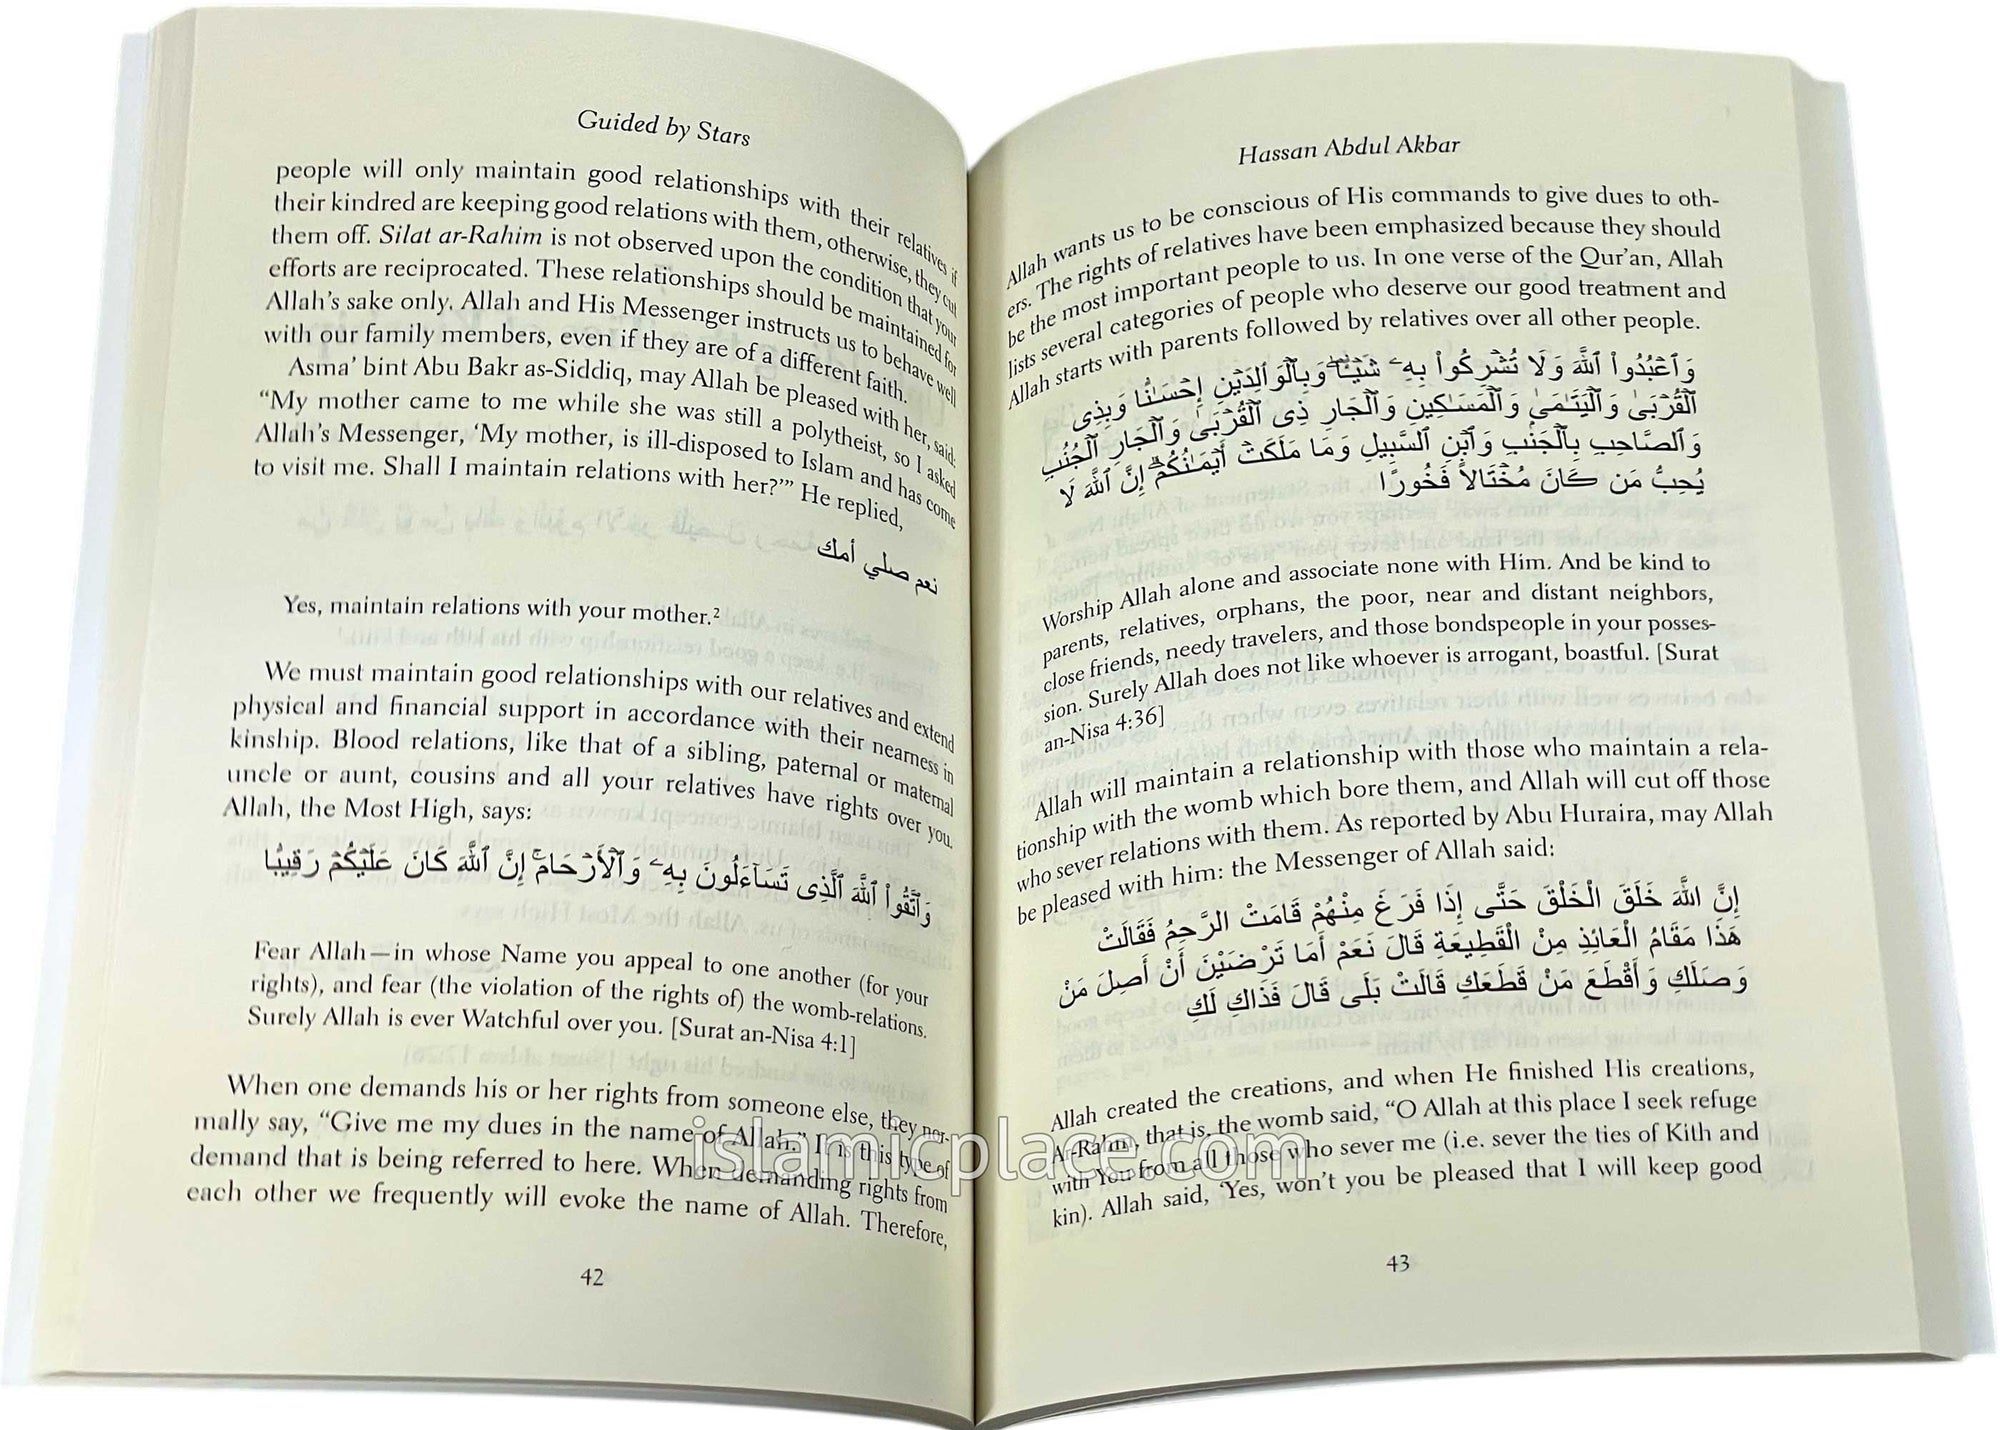 Guided by Stars
people will only maintain good relationships with their relatives if
their kindred are keeping good relations with them, otherwise, they cut
them off. Silat ar-Rahim is not observed upon the condition that your
efforts are reciprocated. These relationships should be maintained for
Allah's sake only. Allah and His Messenger instructs us to behave well
with our family members, even if they are of a different faith.
Asma' bint Abu Bakr as-Siddiq, may Allah be pleased with her, said:
“My mother came to me while she was still a polytheist, so I asked
Allah's Messenger, ‘My mother, is ill-disposed to Islam and has come
to visit me. Shall I maintain relations with her?’” He replied,
نعم صلي أمك
Yes, maintain relations with your mother.²
We must maintain good relationships with our relatives and extend
physical and financial support in accordance with their nearness in
kinship. Blood relations, like that of a sibling, paternal or maternal
uncle or aunt, cousins and all your relatives have rights over you.
Allah, the Most High, says:
وَٱتَّقُوا۟ ٱللَّهَ ٱلَّذِى تَسَآءَلُونَ بِهِۦ وَٱلْأَرْحَامَ ۚ إِنَّ ٱللَّهَ كَانَ عَلَيْكُمْ رَقِيبًا
Fear Allah—in whose Name you appeal to one another (for your
rights), and fear (the violation of the rights of) the womb-relations.
Surely Allah is ever Watchful over you. [Surat an-Nisa 4:1]
When one demands his or her rights from someone else, they nor-
mally say, “Give me my dues in the name of Allah.” It is this type of
demand that is being referred to here. When demanding rights from
each other we frequently will evoke the name of Allah. Therefore,
42
Hassan Abdul Akbar
Allah wants us to be conscious of His commands to give dues to oth-
ers. The rights of relatives have been emphasized because they should
be the most important people to us. In one verse of the Qur'an, Allah
lists several categories of people who deserve our good treatment and
Allah starts with parents followed by relatives over all other people.
وَٱعْبُدُوا۟ ٱللَّهَ وَلَا تُشْرِكُوا۟ بِهِۦ شَيْـًٔا ۖ وَبِٱلْوَٰلِدَيْنِ إِحْسَـٰنًا وَبِذِى
ٱلْقُرْبَىٰ وَٱلْيَتَـٰمَىٰ وَٱلْمَسَـٰكِينِ وَٱلْجَارِ ذِى ٱلْقُرْبَىٰ وَٱلْجَارِ ٱلْجُنُبِ
وَٱلصَّاحِبِ بِٱلْجَنۢبِ وَٱبْنِ ٱلسَّبِيلِ وَمَا مَلَكَتْ أَيْمَـٰنُكُمْ ۗ إِنَّ ٱللَّهَ لَا
يُحِبُّ مَن كَانَ مُخْتَالًا فَخُورًا
Worship Allah alone and associate none with Him. And be kind to
parents, relatives, orphans, the poor, near and distant neighbors,
close friends, needy travelers, and those bondspeople in your posses-
sion. Surely Allah does not like whoever is arrogant, boastful. [Surat
an-Nisa 4:36]
Allah will maintain a relationship with those who maintain a rela-
tionship with the womb which bore them, and Allah will cut off those
who sever relations with them. As reported by Abu Huraira, may Allah
be pleased with him: the Messenger of Allah said:
إِنَّ اللَّهَ خَلَقَ الْخَلْقَ حَتَّى إِذَا فَرَغَ مِنْهُمْ قَامَتْ الرَّحِمُ فَقَالَتْ
هَذَا مَقَامُ الْعَائِذِ مِنْ الْقَطِيعَةِ قَالَ نَعَمْ أَمَا تَرْضَيْنَ أَنْ أَصِلَ مَنْ
وَصَلَكِ وَأَقْطَعَ مَنْ قَطَعَكِ قَالَتْ بَلَى قَالَ فَذَاكِ لَكِ
Allah created the creations, and when He finished His creations,
Ar-Rahm, that is, the womb said, “O Allah at this place I seek refuge
with You from all those who sever me (i.e. sever the ties of Kith and
kin). Allah said, ‘Yes, won't you be pleased that I will keep good
43
islamicplace.com